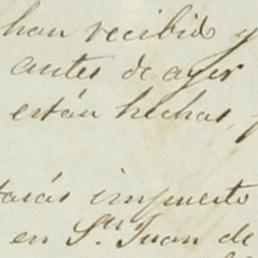 han recibido y
antes de ayer
están hechas,
tarás impuesto
en Sn. Juan de